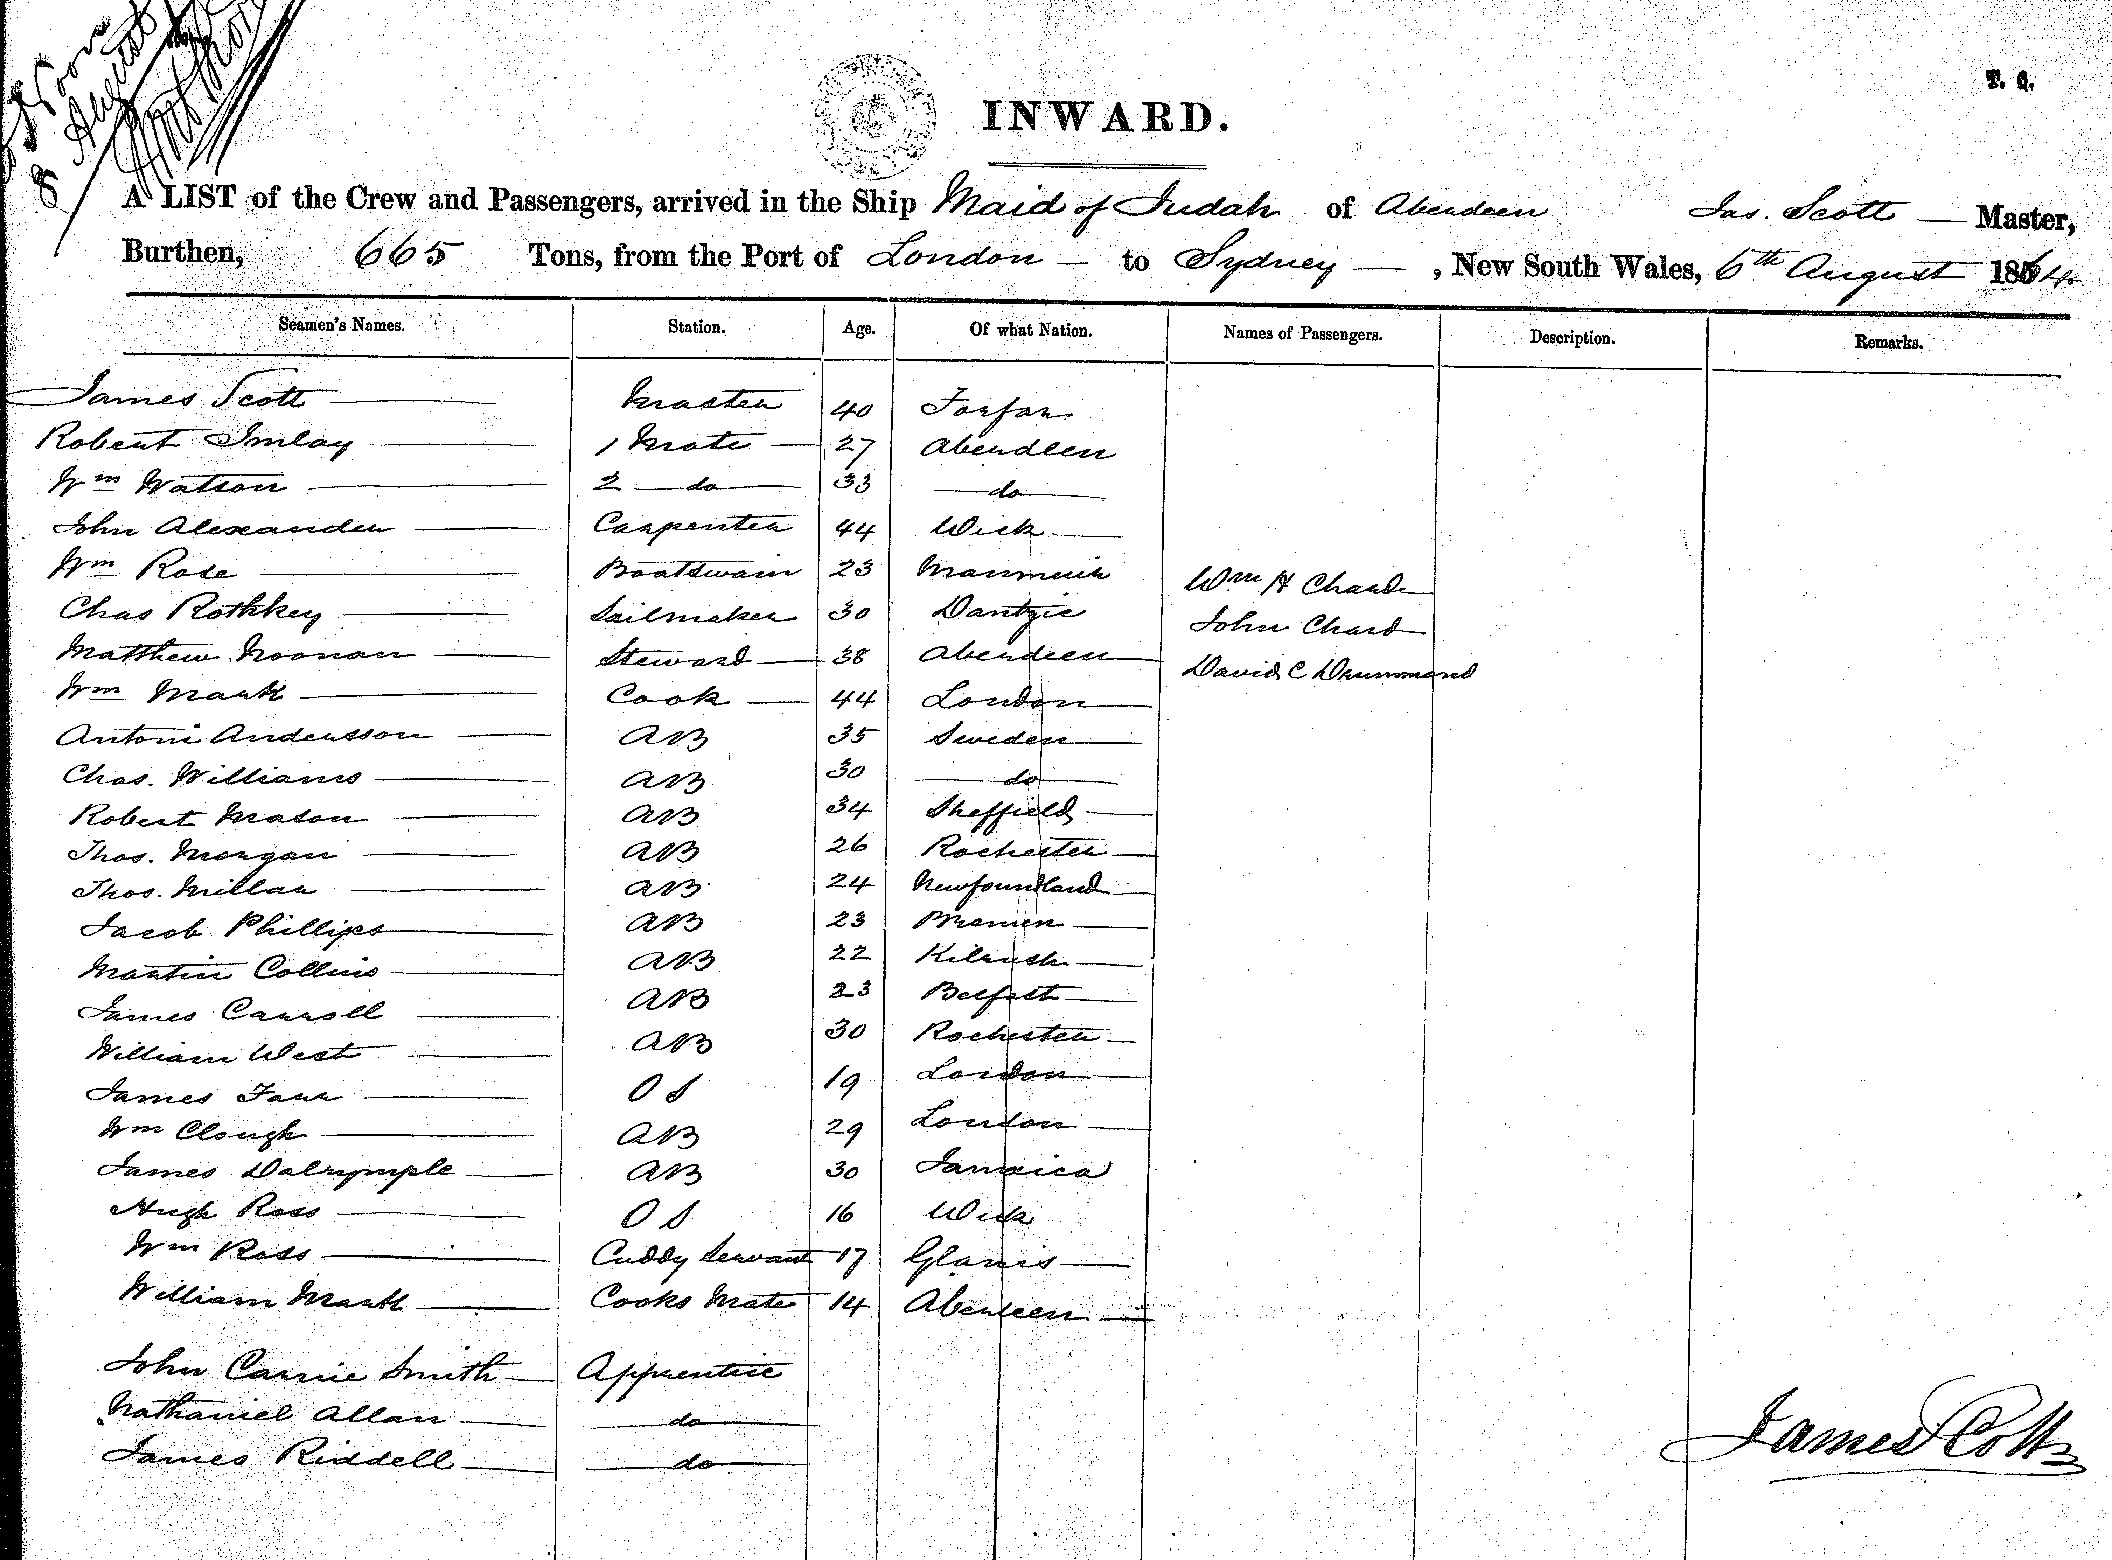 Noon
8 August
T. Q.
INWARD.
A LIST of the Crew and Passengers, arrived in the Ship Maid of Judah of Aberdeen Jas. Scott Master,
Burthen, 665 Tons, from the Port of London to Sydney, New South Wales, 6th August 1864
Seamen's Names. Station. Age. Of what Nation. Names of Passengers. Description. Remarks.
James Scott Master 40 Forfar
Robert Imlay 1 Mate 27 Aberdeen
Wm Watson 2 do 33 do
John Alexander Carpenter 44 Wick
Wm Rose Boatswain 23 Wm H Chard
Chas Rothkey Sailmaker 30 Dantzic John Chard
Matthew Noonan Steward 38 Aberdeen David C Drummond
Wm Mark Cook 44 London
Antoni Andersson AB 35 Sweden
Chas. Williams AB 30 do
Robert Mason AB 34 Sheffield
Thos. Morgan AB 26 Rochester
Thos. Millar AB 24 Newfoundland
Jacob Phillips AB 23 Bremen
Martin Collins AB 22 Kilrush
James Carroll AB 23 Belfast
William West AB 30 Rochester
James Farr O S 19 London
Wm Clough AB 29 London
James Dalrymple AB 30 Jamaica
Hugh Ross O S 16 Wick
Wm Ross Cuddy Servant 17 Glamis
William Mark Cooks Mate 14 Aberdeen
John Carrie Smith Apprentice
Nathaniel Allan do
James Riddell do
James Scott